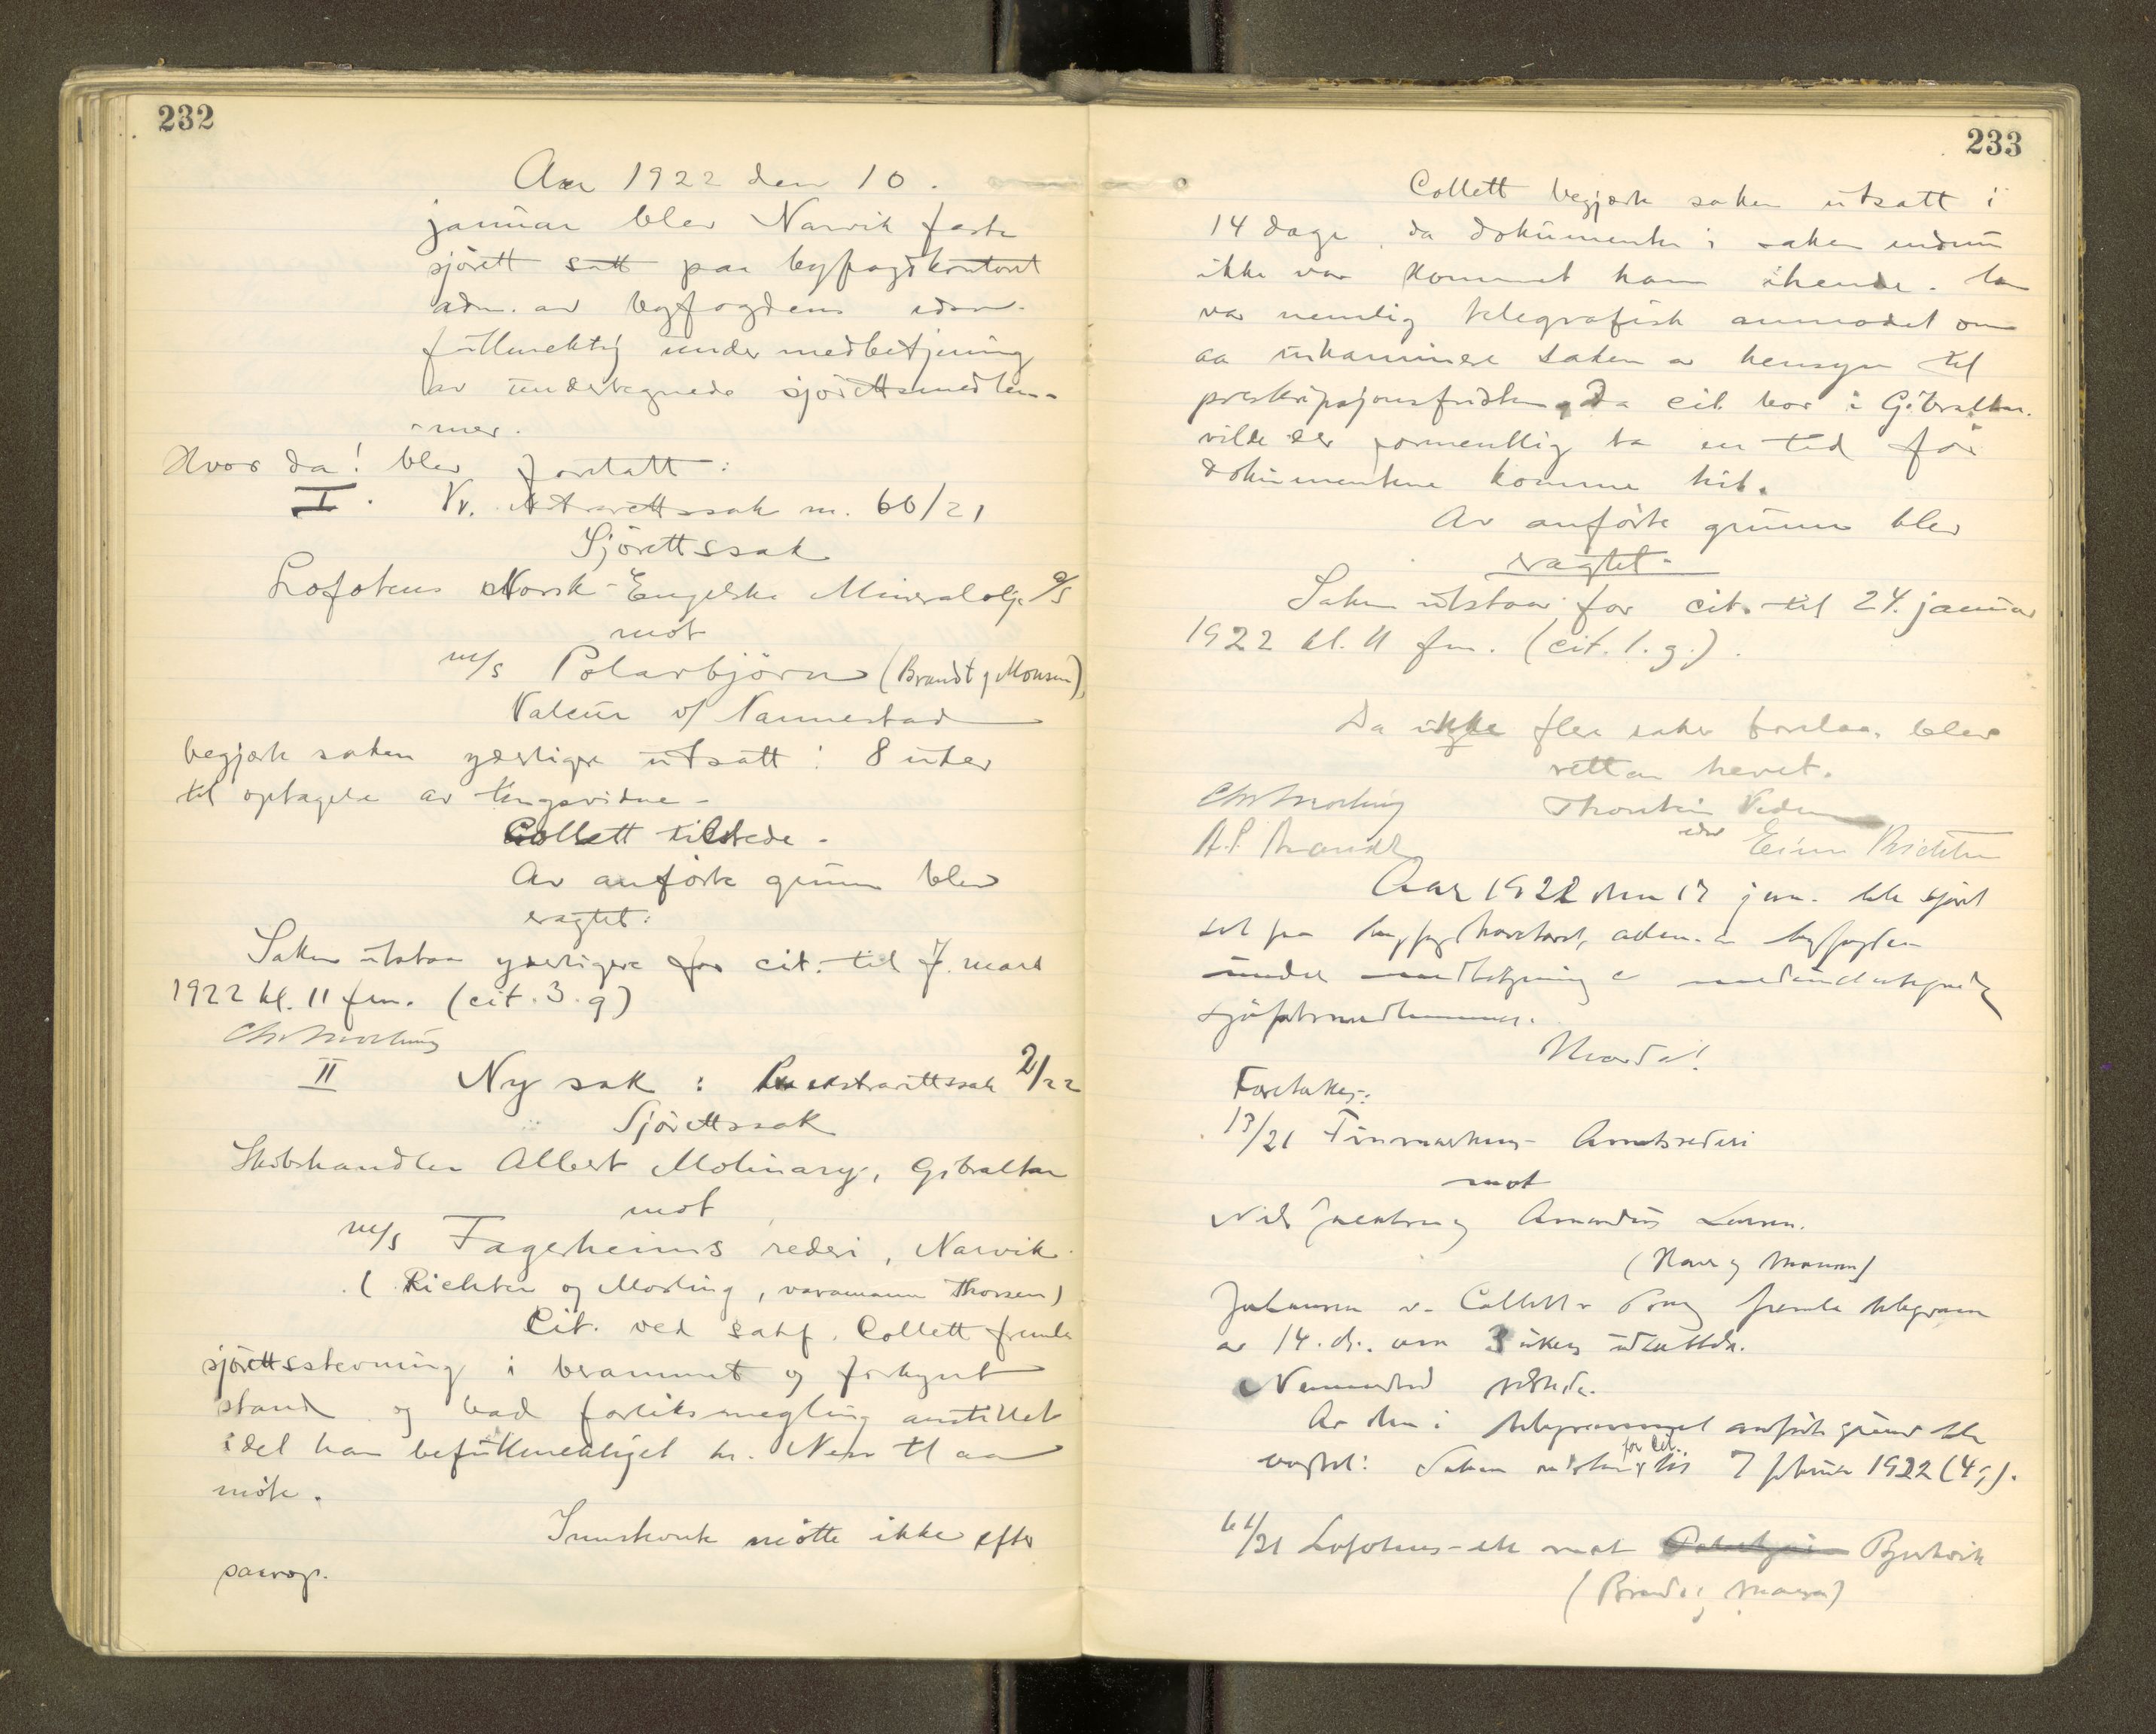 232
Aar 1922 den 10.
januar blev Narvik faste
sjörett satt paa byfogdkontoret
adm. av byfogdens edsv.
fullmektig under medbetjening
av undertegnede sjörettsmedlem-
-mer.
Hvor da! blev foretatt:
I. Nr. 60/21
Sjörettssak
Lofotens Norsk-Engelske Mineralolje a/s
mot
m/s Polarbjörn (Brandt og Monsen),
Valeur v/ Nannestad
begjærte saken yderligere utsatt i 8 uker
til optagelse av tingsvidne-
Collett tilstede.
Av anförte grunn blev
eragtet:
Saken utstaar yderligere for cit. til 7. mars
1922 kl. 11 fm. (cit. 3. g)
Chr Morling
II Ny sak: ekstrarettssak 2/22
Sjörettssak
Skibshandler Albert Molinary, Gibraltar
mot
m/s Fagerheims rederi, Narvik.
(Richter og Morling, varamann Thorsen)
Cit. ved sakf. Collett fremla
sjörettsstevning i berammet og forkynt
stand og bad forliksmegling anstillet
idet han befullmektiget hr. Ness til aa
möte.
Innstevnte mötte ikke efter
paarop.
233
Collett begjærte saken utsatt i
14 dage, da dokumenter i saken endnu
ikke var kommet ham ihende. Han
var nemlig telegrafisk anmodet om
aa inkaminere saken av hensyn til
preskripsjonsfristen. Da cit. bor i Gibraltar
vilde der formentlig ta en tid för
dokumentene komme hit.
Av anförte grunn blev
eragtet:
Saken utstaar for cit. til 24. januar
1922 kl. 11 fm. (cit. 1. g.).
Da ikke flere saker forelaa, blev
retten hevet.
Chr Morling Thorstein
A. P. Brandt edsv Einar Richter
Aar 1922 den 17 jan. ble sjöret
sat paa byfogdkontoret, adm. av byfogden
under medbetjening av medundertegnede
sjöretsmedlemmer.
Hvorda!
Foretokes:
13/21 Finmarkens Amtsrederi
mot
Nils og Amandus Larsen.
(Haver og Monsen)
Johansen v. Collett fremla telegram
av 14. ds. om 3 ukers utsættelse.
Nannestad tilstede.
Av den i telegrammet anförte grund ble
eragtet: Saken utstaar for cit. til 7 februar 1922 (4 g).
61/21 Lofotens- etc mot Bjerkvik
(Brandt og Monsen)